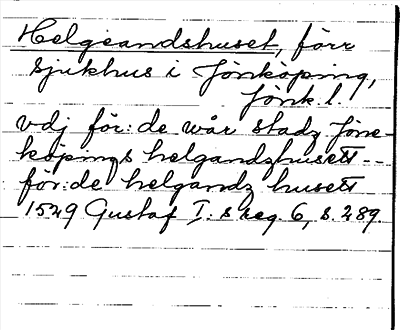 Helgeandshuset, förr
sjukhus i Jönköping,
Jönk. l.
vdj för: de wår stadz Jöne-
köpings helgandzhusett --
för: de helgandz husett
1529 Gustaf I: s reg. 6, s. 289.